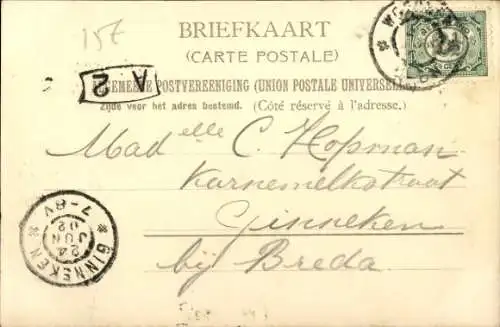 157
BRIEFKAART
(CARTE POSTALE)
ALGEMEENE POSTVEREENIGING (UNION POSTALE UNIVERSELLE)
Zijde voor het adres bestemd. (Côté réservé à l'adresse.)
A 2
Madelle C. Hopman
Karnemelkstraat
Ginneken
bij Breda
GINNEKEN
24 JUN 02
7-8V